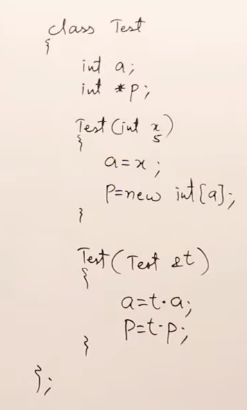 class Test
{
int a;
int *p;
Test(int x)
5
{
a=x;
p=new int[a];
}
Test(Test &t)
{
a=t.a;
p=t.p;
}
};